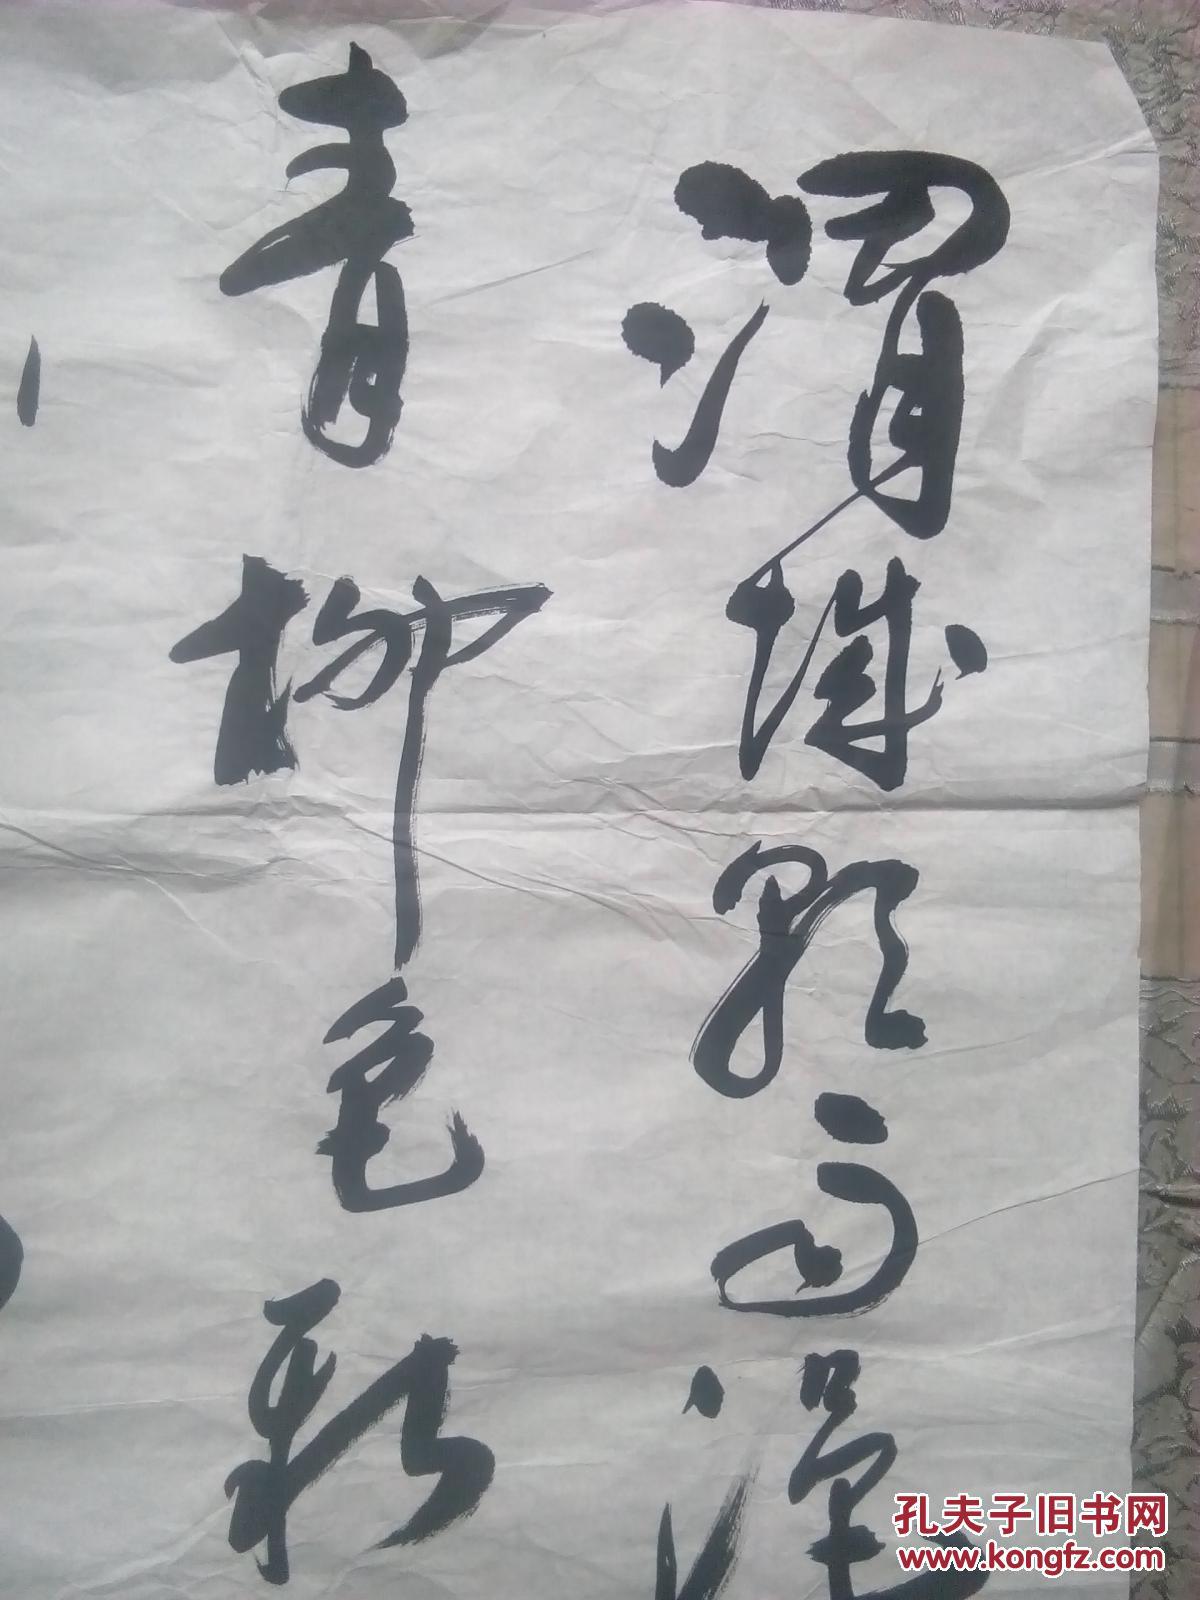 渭城朝雨浥
青柳色新
孔夫子旧书网
www.kongfz.com